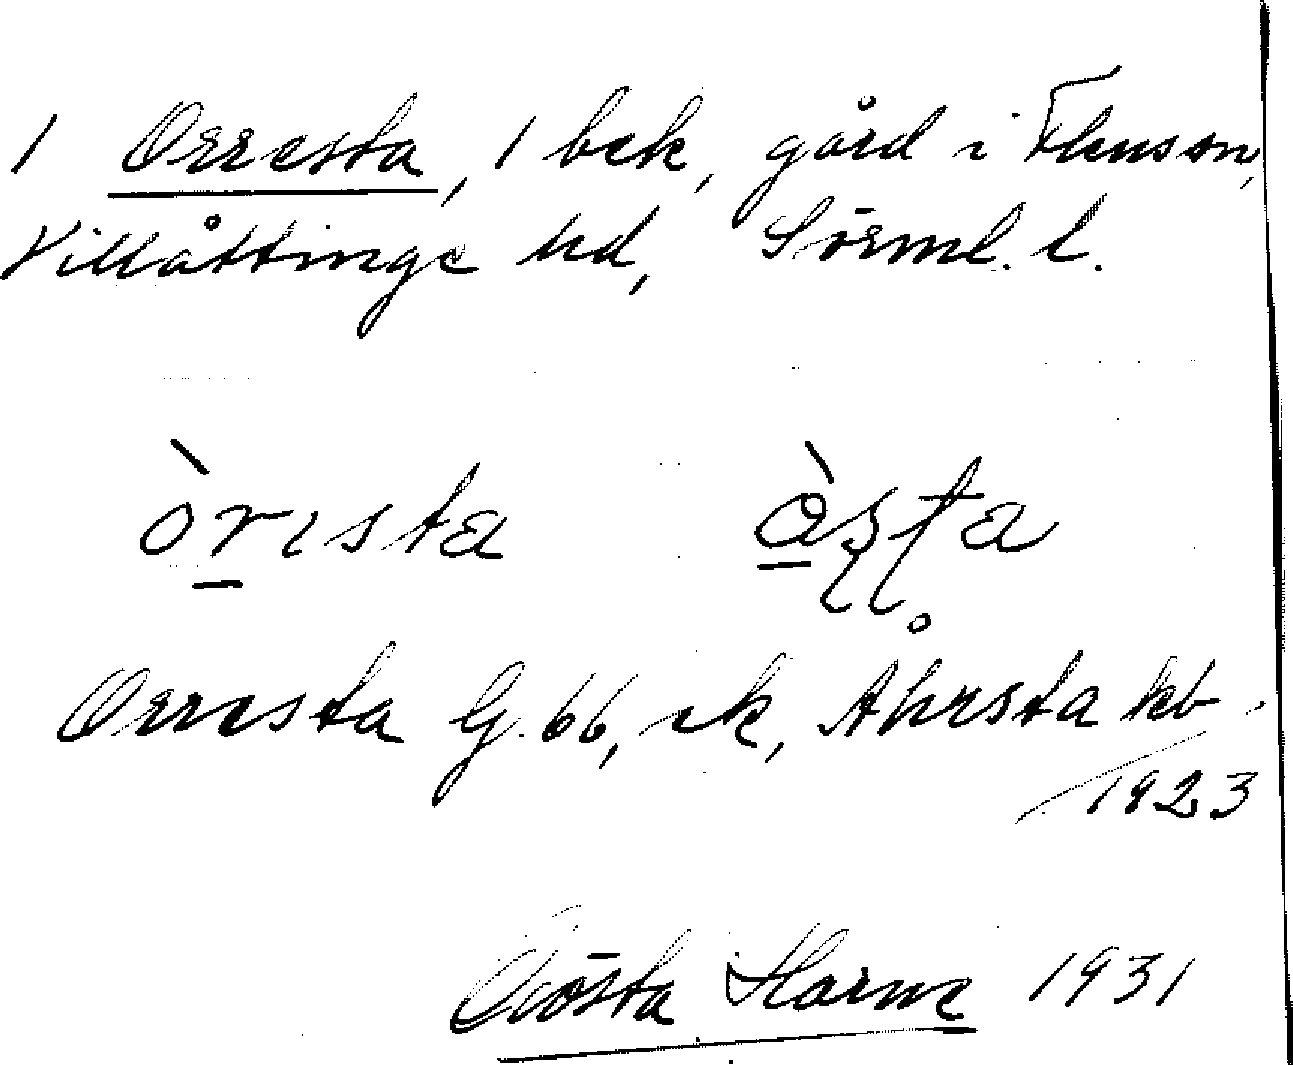 1 Orresta, 1 bek, gård i Flens sn,
Villåttinge hd, Sörml. l.
òrısta àsta
Orresta G. 66, ek, Åhrsta kb.
1923
Gösta Harme 1931